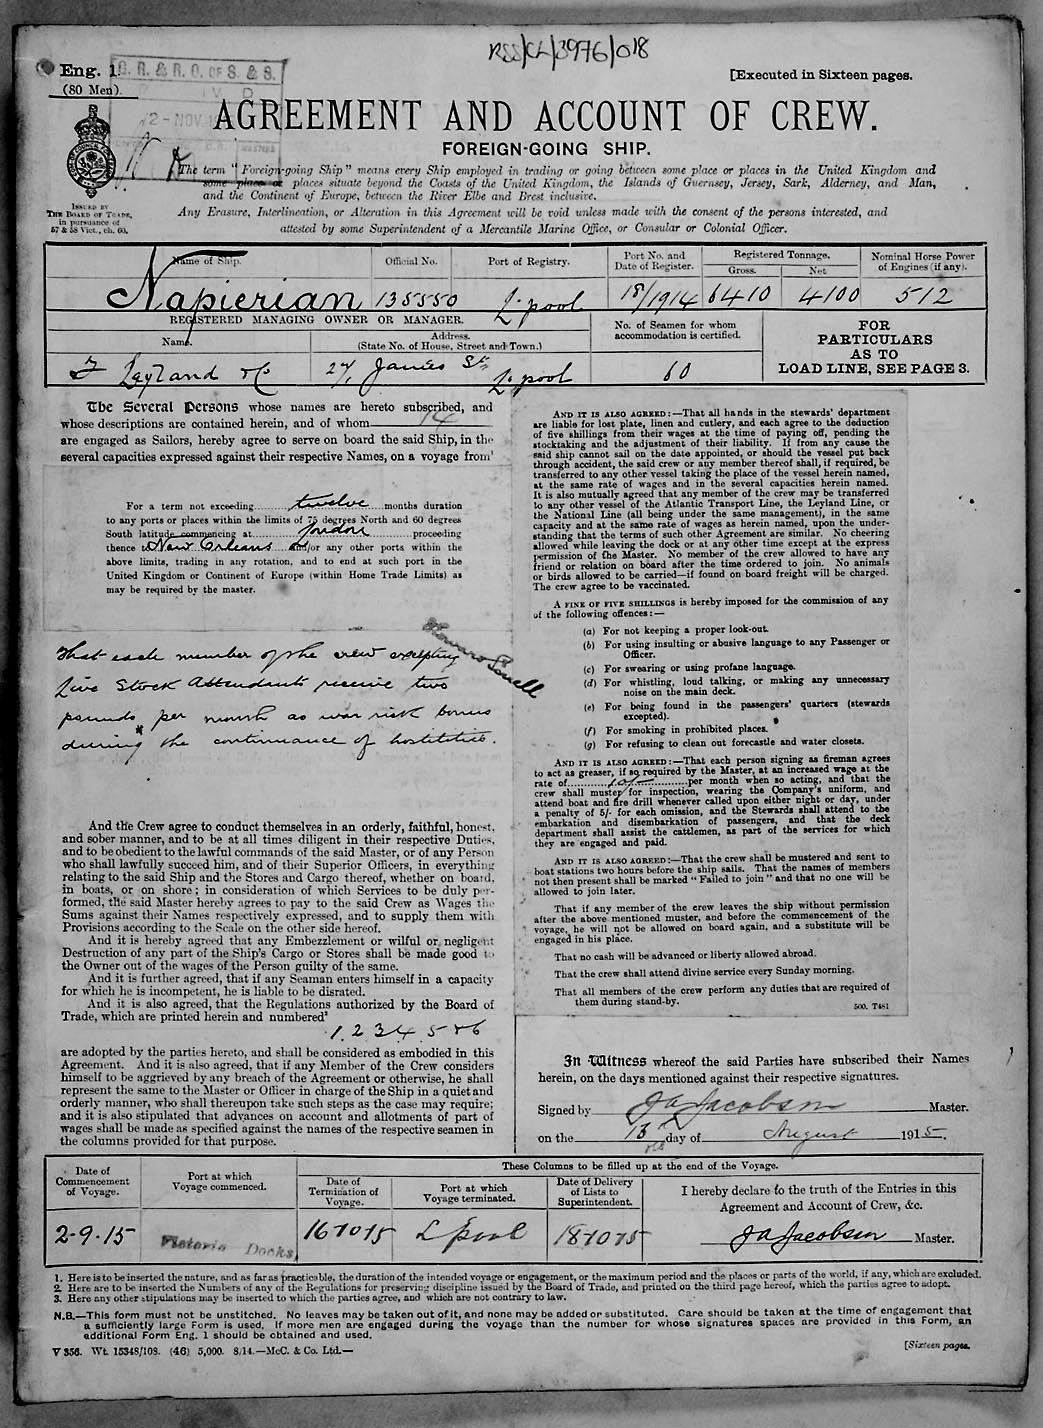 RSS/CL/3976/018
Eng. 1
(80 Men).
G. R. & R. O. OF S. & S.
2-NOV
[Executed in Sixteen pages.
AGREEMENT AND ACCOUNT OF CREW.
FOREIGN-GOING SHIP.
The term "Foreign-going Ship" means every Ship employed in trading or going between some place or places in the United Kingdom and
some place or places situate beyond the Coasts of the United Kingdom, the Islands of Guernsey, Jersey, Sark, Alderney, and Man,
and the Continent of Europe, between the River Elbe and Brest inclusive.
ISSUED BY
THE BOARD OF TRADE,
in pursuance of
57 & 58 Vict., ch. 60.
Any Erasure, Interlineation, or Alteration in this Agreement will be void unless made with the consent of the persons interested, and
attested by some Superintendent of a Mercantile Marine Office, or Consular or Colonial Officer.
Name of Ship. Official No. Port of Registry. Port No. and Date of Register. Registered Tonnage. Gross. Net Nominal Horse Power of Engines (if any).
Napierian 135550 L'pool 18/1914 6410 4100 512
REGISTERED MANAGING OWNER OR MANAGER.
Name. Address. (State No. of House, Street and Town.)
No. of Seamen for whom accommodation is certified.
FOR PARTICULARS AS TO LOAD LINE, SEE PAGE 3.
F Leyland & Co 27, James St. L'pool 60
The Several Persons whose names are hereto subscribed, and
whose descriptions are contained herein, and of whom 14
are engaged as Sailors, hereby agree to serve on board the said Ship, in the
several capacities expressed against their respective Names, on a voyage from¹
For a term not exceeding twelve months duration
to any ports or places within the limits of 75 degrees North and 60 degrees
South latitude commencing at London proceeding
thence to New Orleans &/or any other ports within the
above limits, trading in any rotation, and to end at such port in the
United Kingdom or Continent of Europe (within Home Trade Limits) as
may be required by the master.
That each member of the crew excepting
Live Stock Attendants receive two
pounds per month as war risk bonus
during the continuance of hostilities.
And the Crew agree to conduct themselves in an orderly, faithful, honest,
and sober manner, and to be at all times diligent in their respective Duties,
and to be obedient to the lawful commands of the said Master, or of any Person
who shall lawfully succeed him, and of their Superior Officers, in everything
relating to the said Ship and the Stores and Cargo thereof, whether on board,
in boats, or on shore; in consideration of which Services to be duly per-
formed, the said Master hereby agrees to pay to the said Crew as Wages the
Sums against their Names respectively expressed, and to supply them with
Provisions according to the Scale on the other side hereof.
And it is hereby agreed that any Embezzlement or wilful or negligent
Destruction of any part of the Ship's Cargo or Stores shall be made good to
the Owner out of the wages of the Person guilty of the same.
And it is further agreed, that if any Seaman enters himself in a capacity
for which he is incompetent, he is liable to be disrated.
And it is also agreed, that the Regulations authorized by the Board of
Trade, which are printed herein and numbered²
1. 2 3 4 5 & 6
are adopted by the parties hereto, and shall be considered as embodied in this
Agreement. And it is also agreed, that if any Member of the Crew considers
himself to be aggrieved by any breach of the Agreement or otherwise, he shall
represent the same to the Master or Officer in charge of the Ship in a quiet and
orderly manner, who shall thereupon take such steps as the case may require;
and it is also stipulated that advances on account and allotments of part of
wages shall be made as specified against the names of the respective seamen in
the columns provided for that purpose.
AND IT IS ALSO AGREED:—That all hands in the stewards' department
are liable for lost plate, linen and cutlery, and each agree to the deduction
of five shillings from their wages at the time of paying off, pending the
stocktaking and the adjustment of their liability. If from any cause the
said ship cannot sail on the date appointed, or should the vessel put back
through accident, the said crew or any member thereof shall, if required, be
transferred to any other vessel taking the place of the vessel herein named,
at the same rate of wages and in the several capacities herein named.
It is also mutually agreed that any member of the crew may be transferred
to any other vessel of the Atlantic Transport Line, the Leyland Line, or
the National Line (all being under the same management), in the same
capacity and at the same rate of wages as herein named, upon the under-
standing that the terms of such other Agreement are similar. No cheering
allowed while leaving the dock or at any other time except at the express
permission of the Master. No member of the crew allowed to have any
friend or relation on board after the time ordered to join. No animals
or birds allowed to be carried—if found on board freight will be charged.
The crew agree to be vaccinated.
A FINE OF FIVE SHILLINGS is hereby imposed for the commission of any
of the following offences:—
(a) For not keeping a proper look-out.
(b) For using insulting or abusive language to any Passenger or
Officer.
(c) For swearing or using profane language.
(d) For whistling, loud talking, or making any unnecessary
noise on the main deck.
(e) For being found in the passengers' quarters (stewards
excepted).
(f) For smoking in prohibited places.
(g) For refusing to clean out forecastle and water closets.
AND IT IS ALSO AGREED:—That each person signing as fireman agrees
to act as greaser, if so required by the Master, at an increased wage at the
rate of 10/- per month when so acting, and that the
crew shall muster for inspection, wearing the Company's uniform, and
attend boat and fire drill whenever called upon either night or day, under
a penalty of 5/- for each omission, and the Stewards shall attend to the
embarkation and disembarkation of passengers, and that the deck
department shall assist the cattlemen, as part of the services for which
they are engaged and paid.
AND IT IS ALSO AGREED:—That the crew shall be mustered and sent to
boat stations two hours before the ship sails. That the names of members
not then present shall be marked "Failed to join" and that no one will be
allowed to join later.
That if any member of the crew leaves the ship without permission
after the above mentioned muster, and before the commencement of the
voyage, he will not be allowed on board again, and a substitute will be
engaged in his place.
That no cash will be advanced or liberty allowed abroad.
That the crew shall attend divine service every Sunday morning.
That all members of the crew perform any duties that are required of
them during stand-by.
500. T481
In Witness whereof the said Parties have subscribed their Names
herein, on the days mentioned against their respective signatures.
Signed by J A Jacobson Master.
on the 18th day of August 1915.
Date of Commencement of Voyage. Port at which Voyage commenced. These Columns to be filled up at the end of the Voyage.
Date of Termination of Voyage. Port at which Voyage terminated. Date of Delivery of Lists to Superintendent.
I hereby declare to the truth of the Entries in this
Agreement and Account of Crew, &c.
2-9-15 Victoria Docks 16 10 15 L'pool 18 10 15 J A Jacobson Master.
1. Here is to be inserted the nature, and as far as practicable, the duration of the intended voyage or engagement, or the maximum period and the places or parts of the world, if any, which are excluded.
2. Here are to be inserted the Numbers of any of the Regulations for preserving discipline issued by the Board of Trade, and printed on the third page hereof, which the parties agree to adopt.
3. Here any other stipulations may be inserted to which the parties agree, and which are not contrary to law.
N.B.—This form must not be unstitched. No leaves may be taken out of it, and none may be added or substituted. Care should be taken at the time of engagement that
a sufficiently large Form is used. If more men are engaged during the voyage than the number for whose signatures spaces are provided in this Form, an
additional Form Eng. 1 should be obtained and used.
V 356. Wt. 15348/108. (46) 5,000. 8/14.—McC. & Co. Ltd.—
[Sixteen pages.